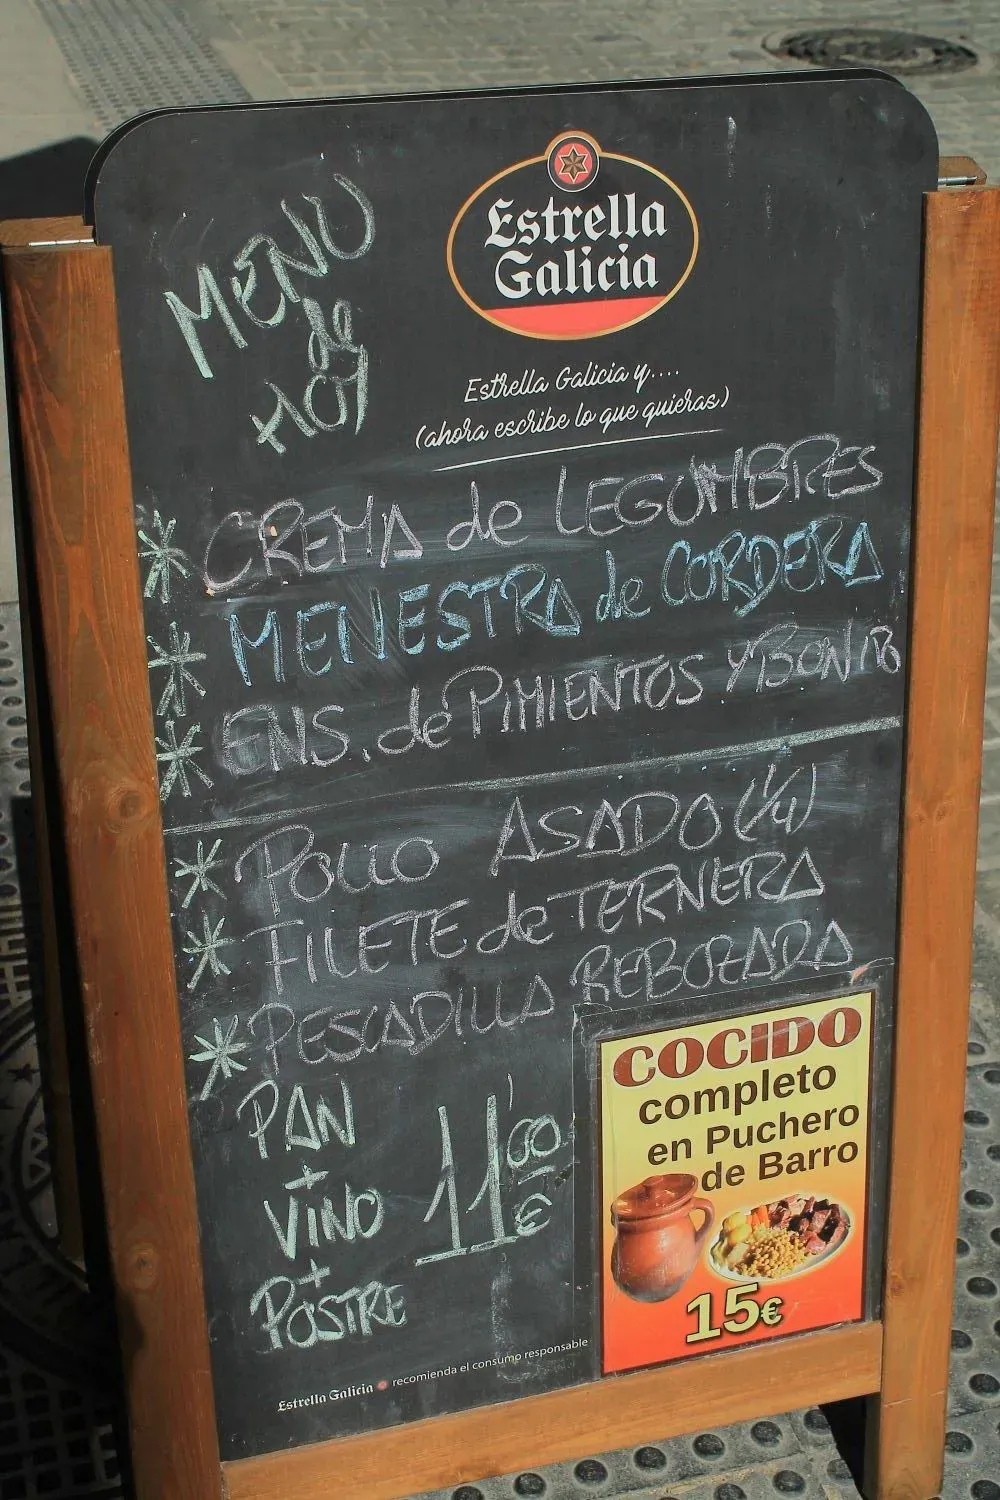 MENU
de
HOY
Estrella
Galicia
Estrella Galicia y....
(ahora escribe lo que quieras)
* CREMA de LEGUMBRES
* MENESTRA de CORDERA
* ENS. de PIMIENTOS Y BONITO
* POLLO ASADO (1/4)
* FILETE de TERNERA
* PESCADILLA REBOZADA
PAN
+
VINO
+
POSTRE
11'00 €
COCIDO
completo
en Puchero
de Barro
15€
Estrella Galicia recomienda el consumo responsable